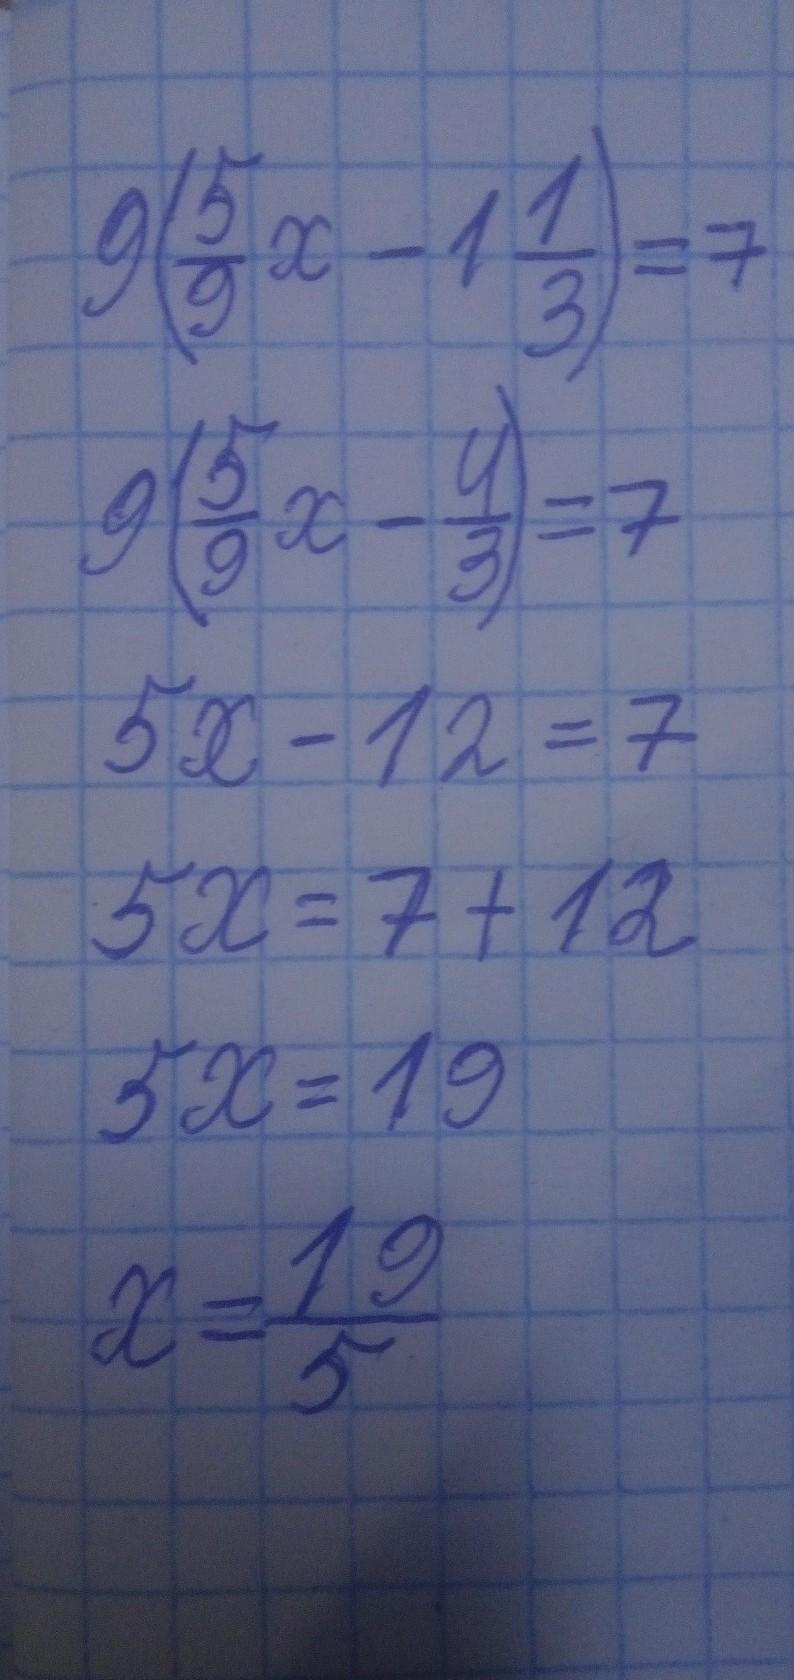 9(5/9 x - 1 1/3) = 7
9(5/9 x - 4/3) = 7
5x - 12 = 7
5x = 7 + 12
5x = 19
x = 19/5